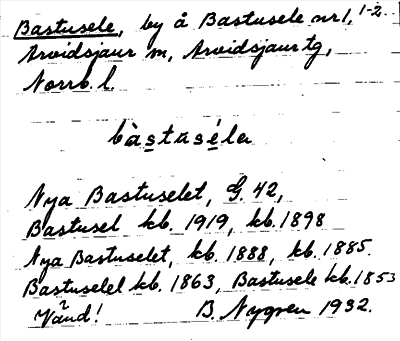 Bastusele, by å Bastusele nr 1, 1-2.
Arvidsjaur sn, Arvidsjaur tg,
Norrb. l.
bàstaséla
Nya Bastuselet, G. 42,
Bastusel kb. 1919, kb. 1898
Nya Bastuselet, kb. 1888, kb. 1885.
Bastuselel kb. 1863, Bastusele kb. 1853
Vänd! B. Nygren 1932.